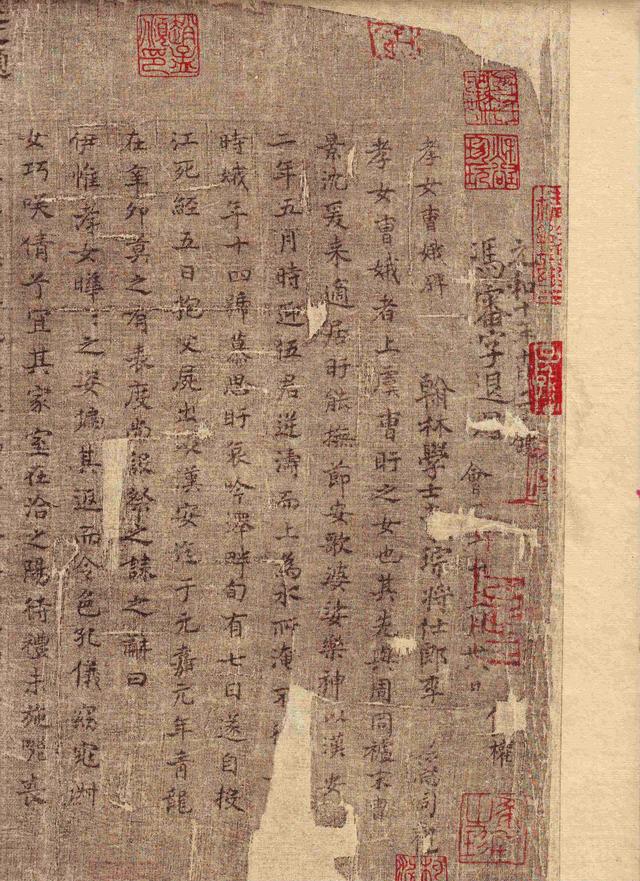 元和十
馮審字退思
翰林學士 淙將仕郎
孝女曹娥碑
孝女曹娥者上虞曹盱之女也其先與周同祖末胄
景沈爰来適居盱能撫節安歌婆娑樂神以漢安
二年五月時迎伍君逆濤而上為水所淹不
時娥年十四號慕思盱哀吟澤畔旬有七日遂自投
江死經五日抱父屍出以漢安迄于元嘉元年青龍
在辛卯莫之有表度尚設祭之誄之辭曰
伊惟孝女曄〻之姿偏其返而令色孔儀窈窕淑
女巧咲倩兮宜其家室在洽之陽待禮未施嗟喪